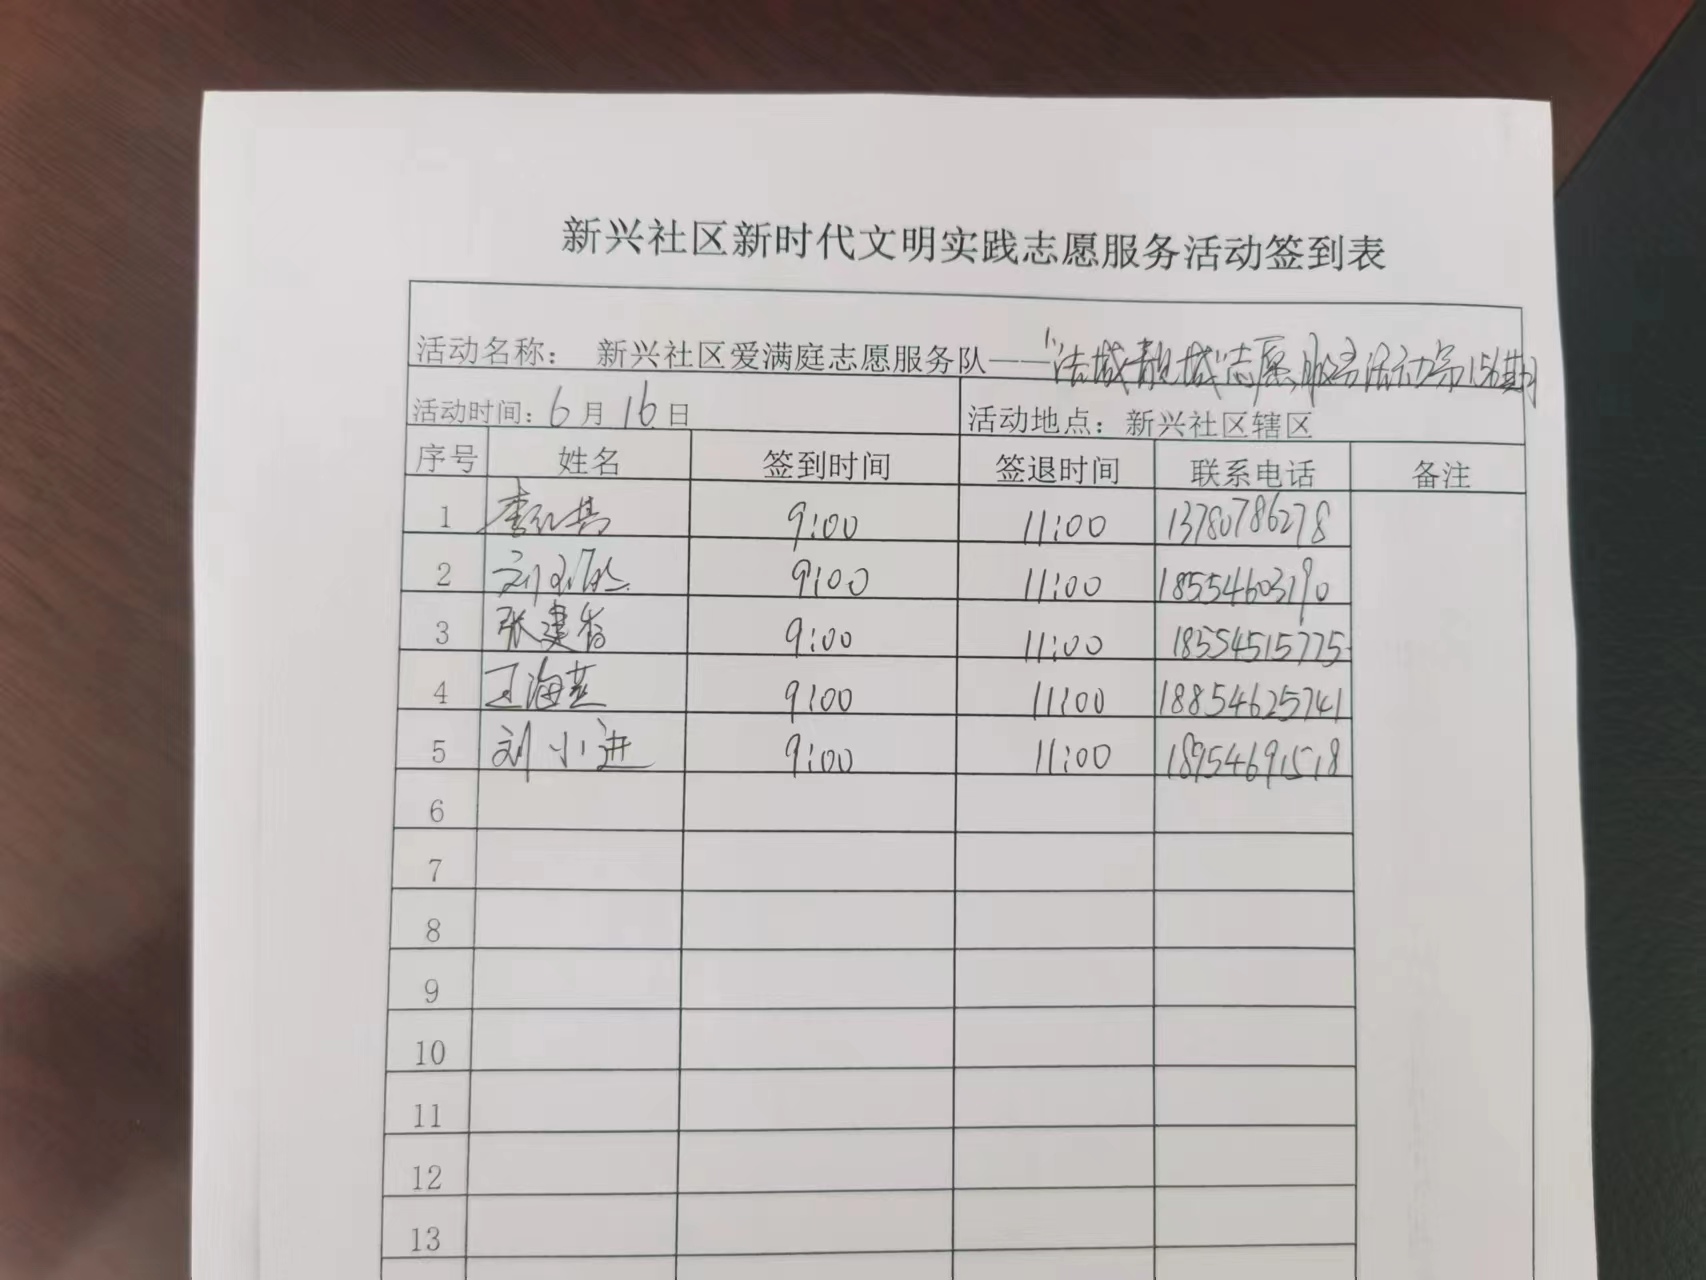 新兴社区新时代文明实践志愿服务活动签到表
活动名称： 新兴社区爱满庭志愿服务队——“洁城靓城”志愿服务活动第156期
活动时间：6月16日 活动地点：新兴社区辖区
序号 姓名 签到时间 签退时间 联系电话 备注
1 李红 9:00 11:00 13780786278
2 刘 9:00 11:00 18554603190
3 张建 9:00 11:00 18554515775
4 王海燕 9:00 11:00 18854625741
5 刘小进 9:00 11:00 18954691518
6
7
8
9
10
11
12
13